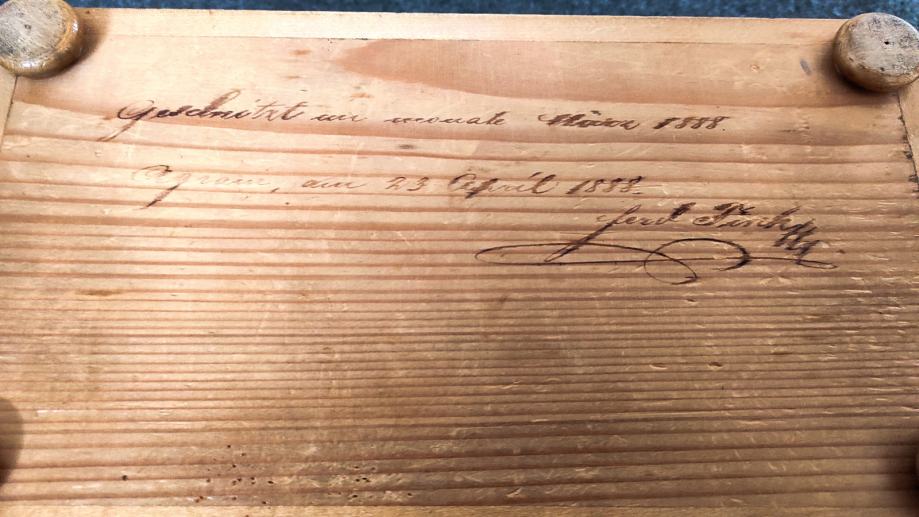 Geschnitzt im monate März 1888.
Agram, am 23 April 1888.
Ferd